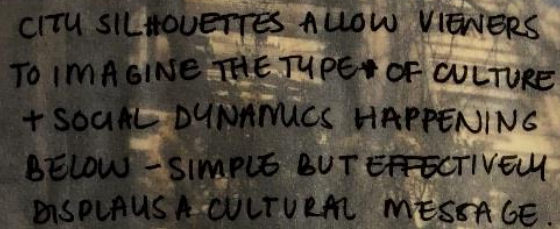 CITY SILHOUETTES ALLOW VIEWERS
TO IMAGINE THE TYPE OF CULTURE
+ SOCIAL DYNAMICS HAPPENING
BELOW - SIMPLE BUT EFFECTIVELY
DISPLAYS A CULTURAL MESSAGE.